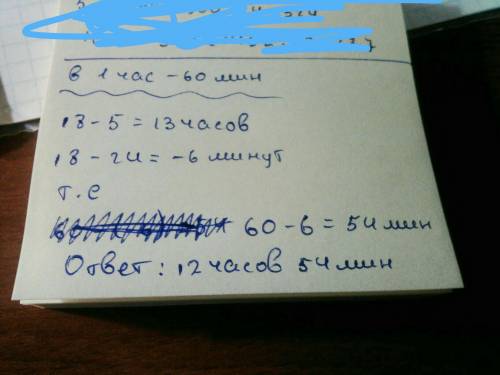 в 1 час - 60 мин
18 - 5 = 13 часов
18 - 24 = -6 минут
т. е
60 - 6 = 54 мин
Ответ: 12 часов 54 мин